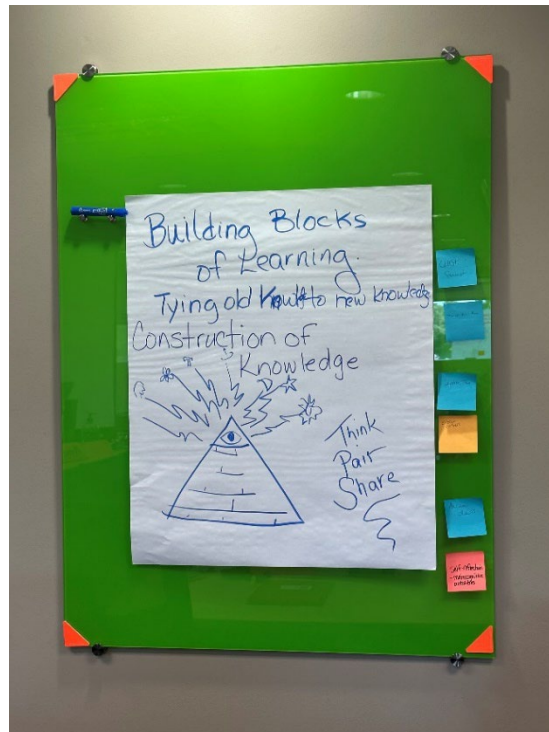 Building Blocks
of Learning.
Tying old to new knowledg
Construction of
Knowledge
Think
Pair
Share